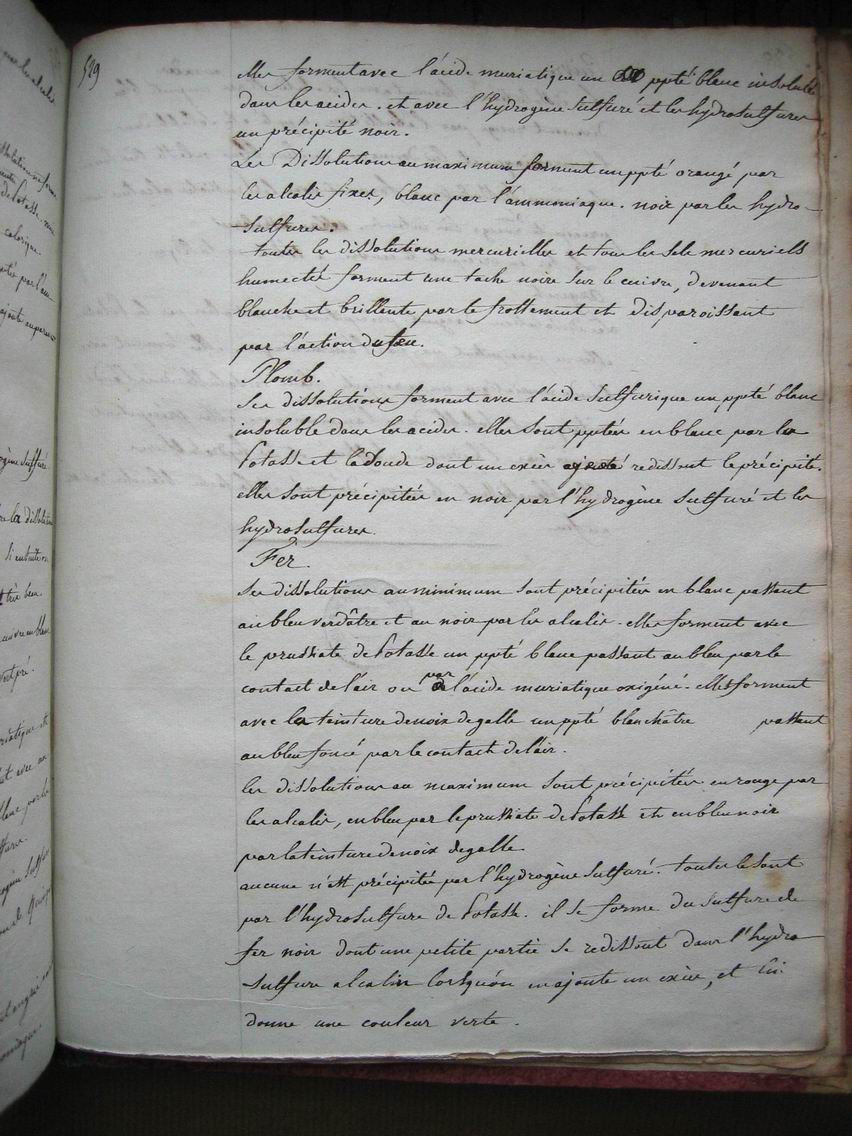 529
elles forment avec l'acide muriatique un ppté blanc insoluble
dans les acides. et avec l'hydrogène sulfuré et les hydrosulfures
un précipité noir.
Les Dissolutions au maximum forment un ppté orangé par
les alcalis fixes, blanc par l'ammoniaque. noir par les hydro-
sulfures.
toutes les dissolutions mercurielles et tous les sels mercuriels
humectés forment une tache noire sur le cuivre, devenant
blanche et brillente par le frottement et disparoissant
par l'action du feu.
Plomb.
Ses dissolutions forment avec l'acide sulfurique un ppté blanc
insoluble dans les acides. elles sont pptées en blanc par la
Potasse et la Soude dont un excès ajouté redissout le précipité.
elles sont précipitées en noir par l'hydrogène sulfuré et les
hydrosulfures.
Fer.
Ses dissolutions au minimum sont précipitées en blanc passant
au bleu verdâtre et au noir par les alcalis. elles forment avec
le prussiate de Potasse un ppté blanc passant au bleu par le
contact de l'air ou par l'acide muriatique oxigéné. elles forment
avec la teinture de noix de galle un ppté blanchâtre passant
au bleu foncé par le contact de l'air.
les dissolutions au maximum sont précipitées en rouge par
les alcalis, en bleu par le prussiate de Potasse et en bleu noir
par la teinture de noix de galle
aucune n'est précipitée par l'hydrogène sulfuré. toutes le sont
par l'hydrosulfure de Potasse. il se forme du sulfure de
fer noir dont une petite partie se redissout dans l'hydro
sulfure alcalin lorsqu'on en ajoute un excès, et lui
donne une couleur verte.